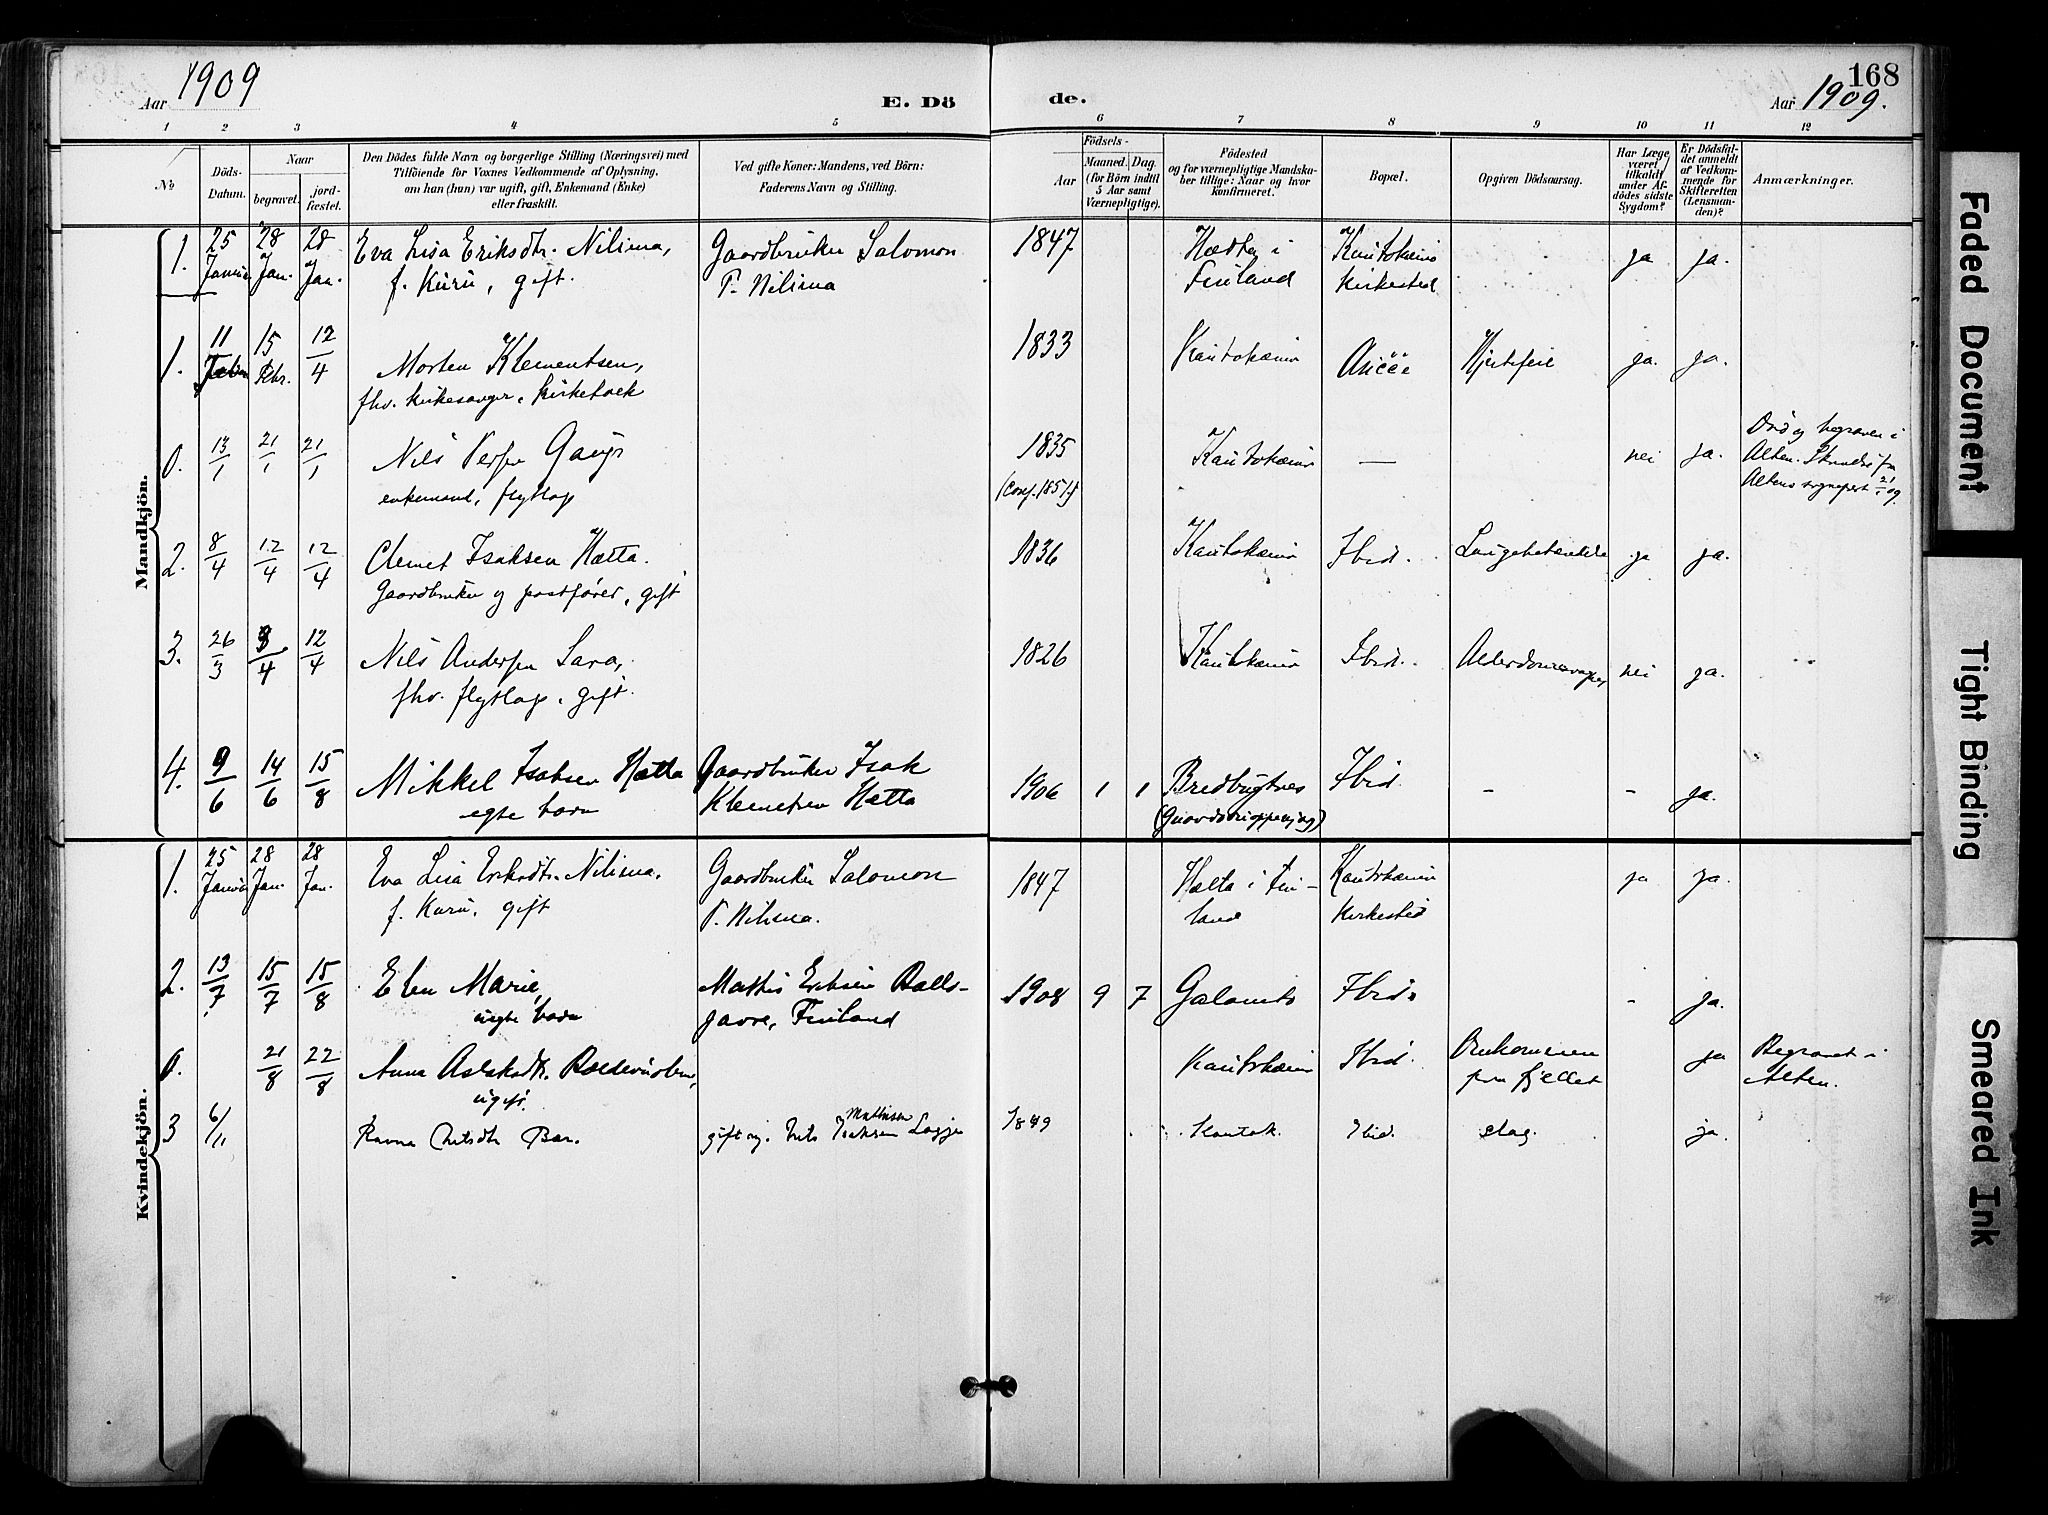 168
Aar 1909
E. Dö
de.
Aar 1909.
1 2 3 4 5 6 7 8 9 10 11 12
No
Döds-
Datum.
Naar
begravet.
jord-
fæstet.
Den Dödes fulde Navn og borgerlige Stilling (Næringsvei) med
Tilföiende for Voxnes Vedkommende af Oplysning,
om han (hun) var ugift, gift, Enkemand (Enke)
eller fraskilt.
Ved gifte Koner: Mandens, ved Börn:
Faderens Navn og Stilling.
Födsels-
Aar
Maaned.
Dag.
(for Börn indtil
5 Aar samt
Værnepligtige).
Födested
og for værnepligtige Mandska-
ber tillige: Naar og hvor
konfirmeret.
Bopæl.
Opgiven Dödsaarsag.
Har Læge
været
tilkaldt
under Af-
dödes sidste
Sygdom?
Er Dödsfal-
det anmeldt
af Vedkom-
mende for
Skifteretten
(Lensman-
den)?
Anmærkninger.
Mandkjön.
1. 25 28 28 Eva Lisa Eriksdtr. Nilima, Gaardbruker Salomon 1847 i Kautokeino ja ja.
Januar Jan. Jan. f. Kuru, gift. P. Nilima Finland Kirkested
1. 11 15 12/4 Morten Klementsen, 1833 Kautokeino Hjertefeil ja. ja.
Febr. fhv. kirkesanger,
0. 13/1 21/1 21/1 Nils Persen Gaup 1835 Kautokeino — nei ja. Död og begraven i
enkemand, flytlap (conf. 1851) Alten.
Altens 21/1 og
2. 8/4 12/4 12/4 Clemet Isaksen Hætta. 1836 Kautokeino Ibid. Lungebetændelse ja ja.
Gaardbruker og postförer, gift
3. 26/3 3/4 12/4 Nils Andersen Sara, 1826 Kautokeino Ibid. Alderdomssvaghed nei ja.
fhv. flytlap, gift.
4. 9/6 14/6 15/8 Mikkel Isaksen Hætta Gaardbruker Isak 1906 1 1 Bredbugtnes Ibid. - - ja.
egte barn Klemetsen Hætta
Kvindekjön.
1. 25 28 28 Eva Lisa Eriksdtr. Nilima, Gaardbruker Salomon 1847 Hætta i Fin- Kautokeino ja ja.
Januar Jan. Jan. f. Kuru, gift P. Nilima. land Kirkested
2. 13/7 15/7 15/8 Elen Marie, Mathis Eriksen 1908 9 7 Galanito Ibid. - ja.
uegte barn Finland
0. 21/8 22/8 Anna Aslaksdtr. Kautokeino Ibid. Omkommen ja Begravet i
ugift. paa fjellet Alten.
3 6/11 Ravna Nilsdtr Bær. gift m. Nils Mathissen 1849 Kautok. Ibid. slag. ja.
Faded Document
Tight Binding
Smeared Ink